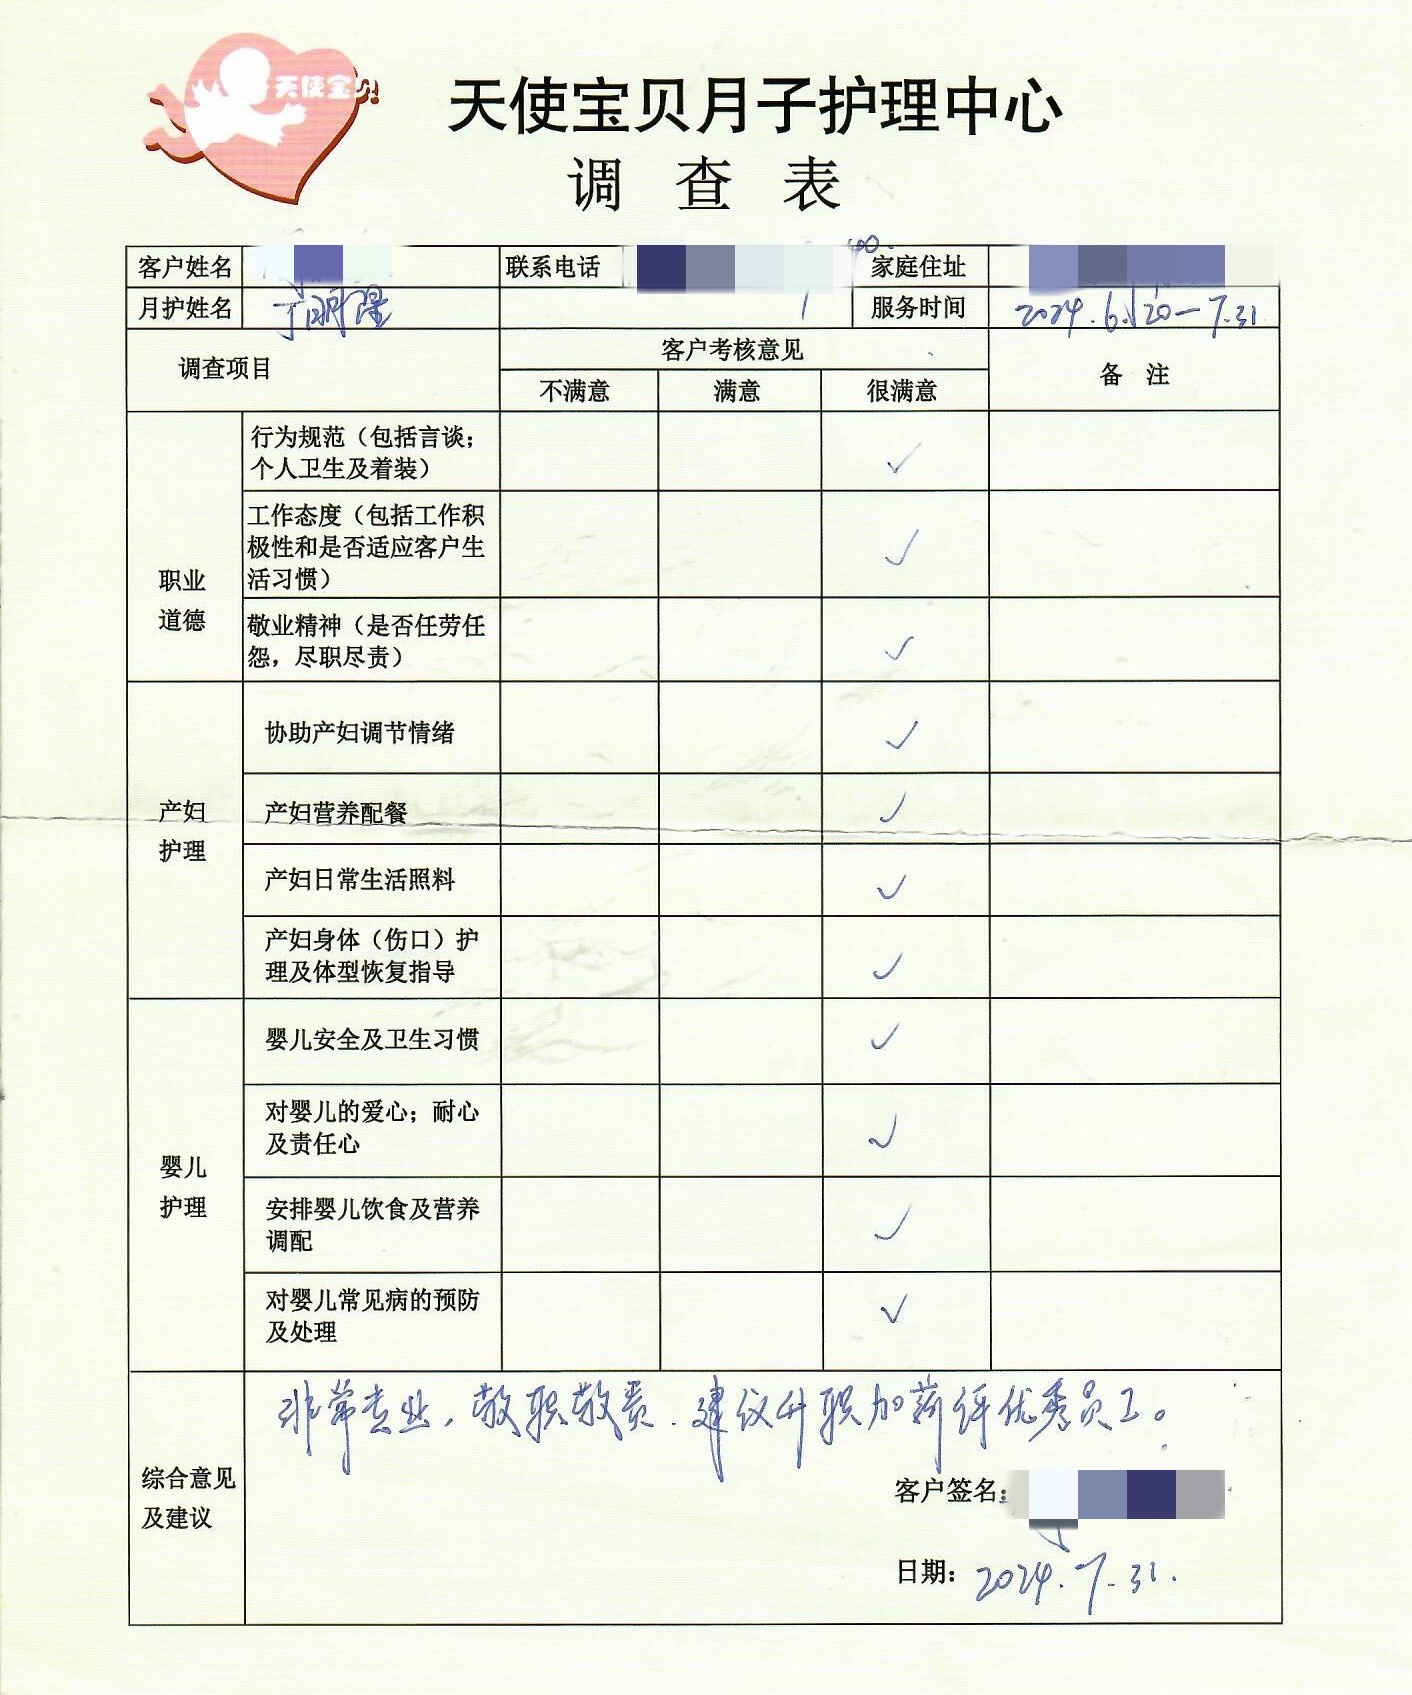 天使宝贝
天使宝贝月子护理中心
调 查 表
客户姓名 联系电话 家庭住址
月护姓名 服务时间 2024.6.20—7.31
调查项目 客户考核意见 备 注
不满意 满意 很满意
职业
道德
行为规范（包括言谈；
个人卫生及着装）
工作态度（包括工作积
极性和是否适应客户生
活习惯）
敬业精神（是否任劳任
怨，尽职尽责）
产妇
护理
协助产妇调节情绪
产妇营养配餐
产妇日常生活照料
产妇身体（伤口）护
理及体型恢复指导
婴儿
护理
婴儿安全及卫生习惯
对婴儿的爱心；耐心
及责任心
安排婴儿饮食及营养
调配
对婴儿常见病的预防
及处理
综合意见
及建议
非常专业，敬职敬责．建议升职加薪评优秀员工。
客户签名：
日期：2024.7.31.